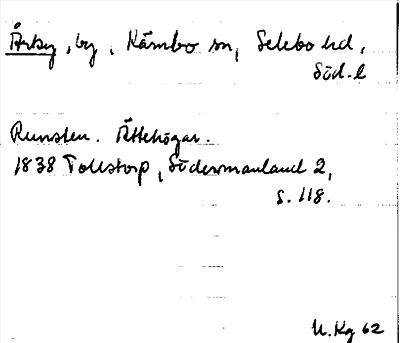 Årby, by, Kärnbo sn, Selebo hd,
Söd. l
Runsten. Ättehögar.
1838 Tollstorp, Södermanland 2,
s. 118.
U. Kg 62